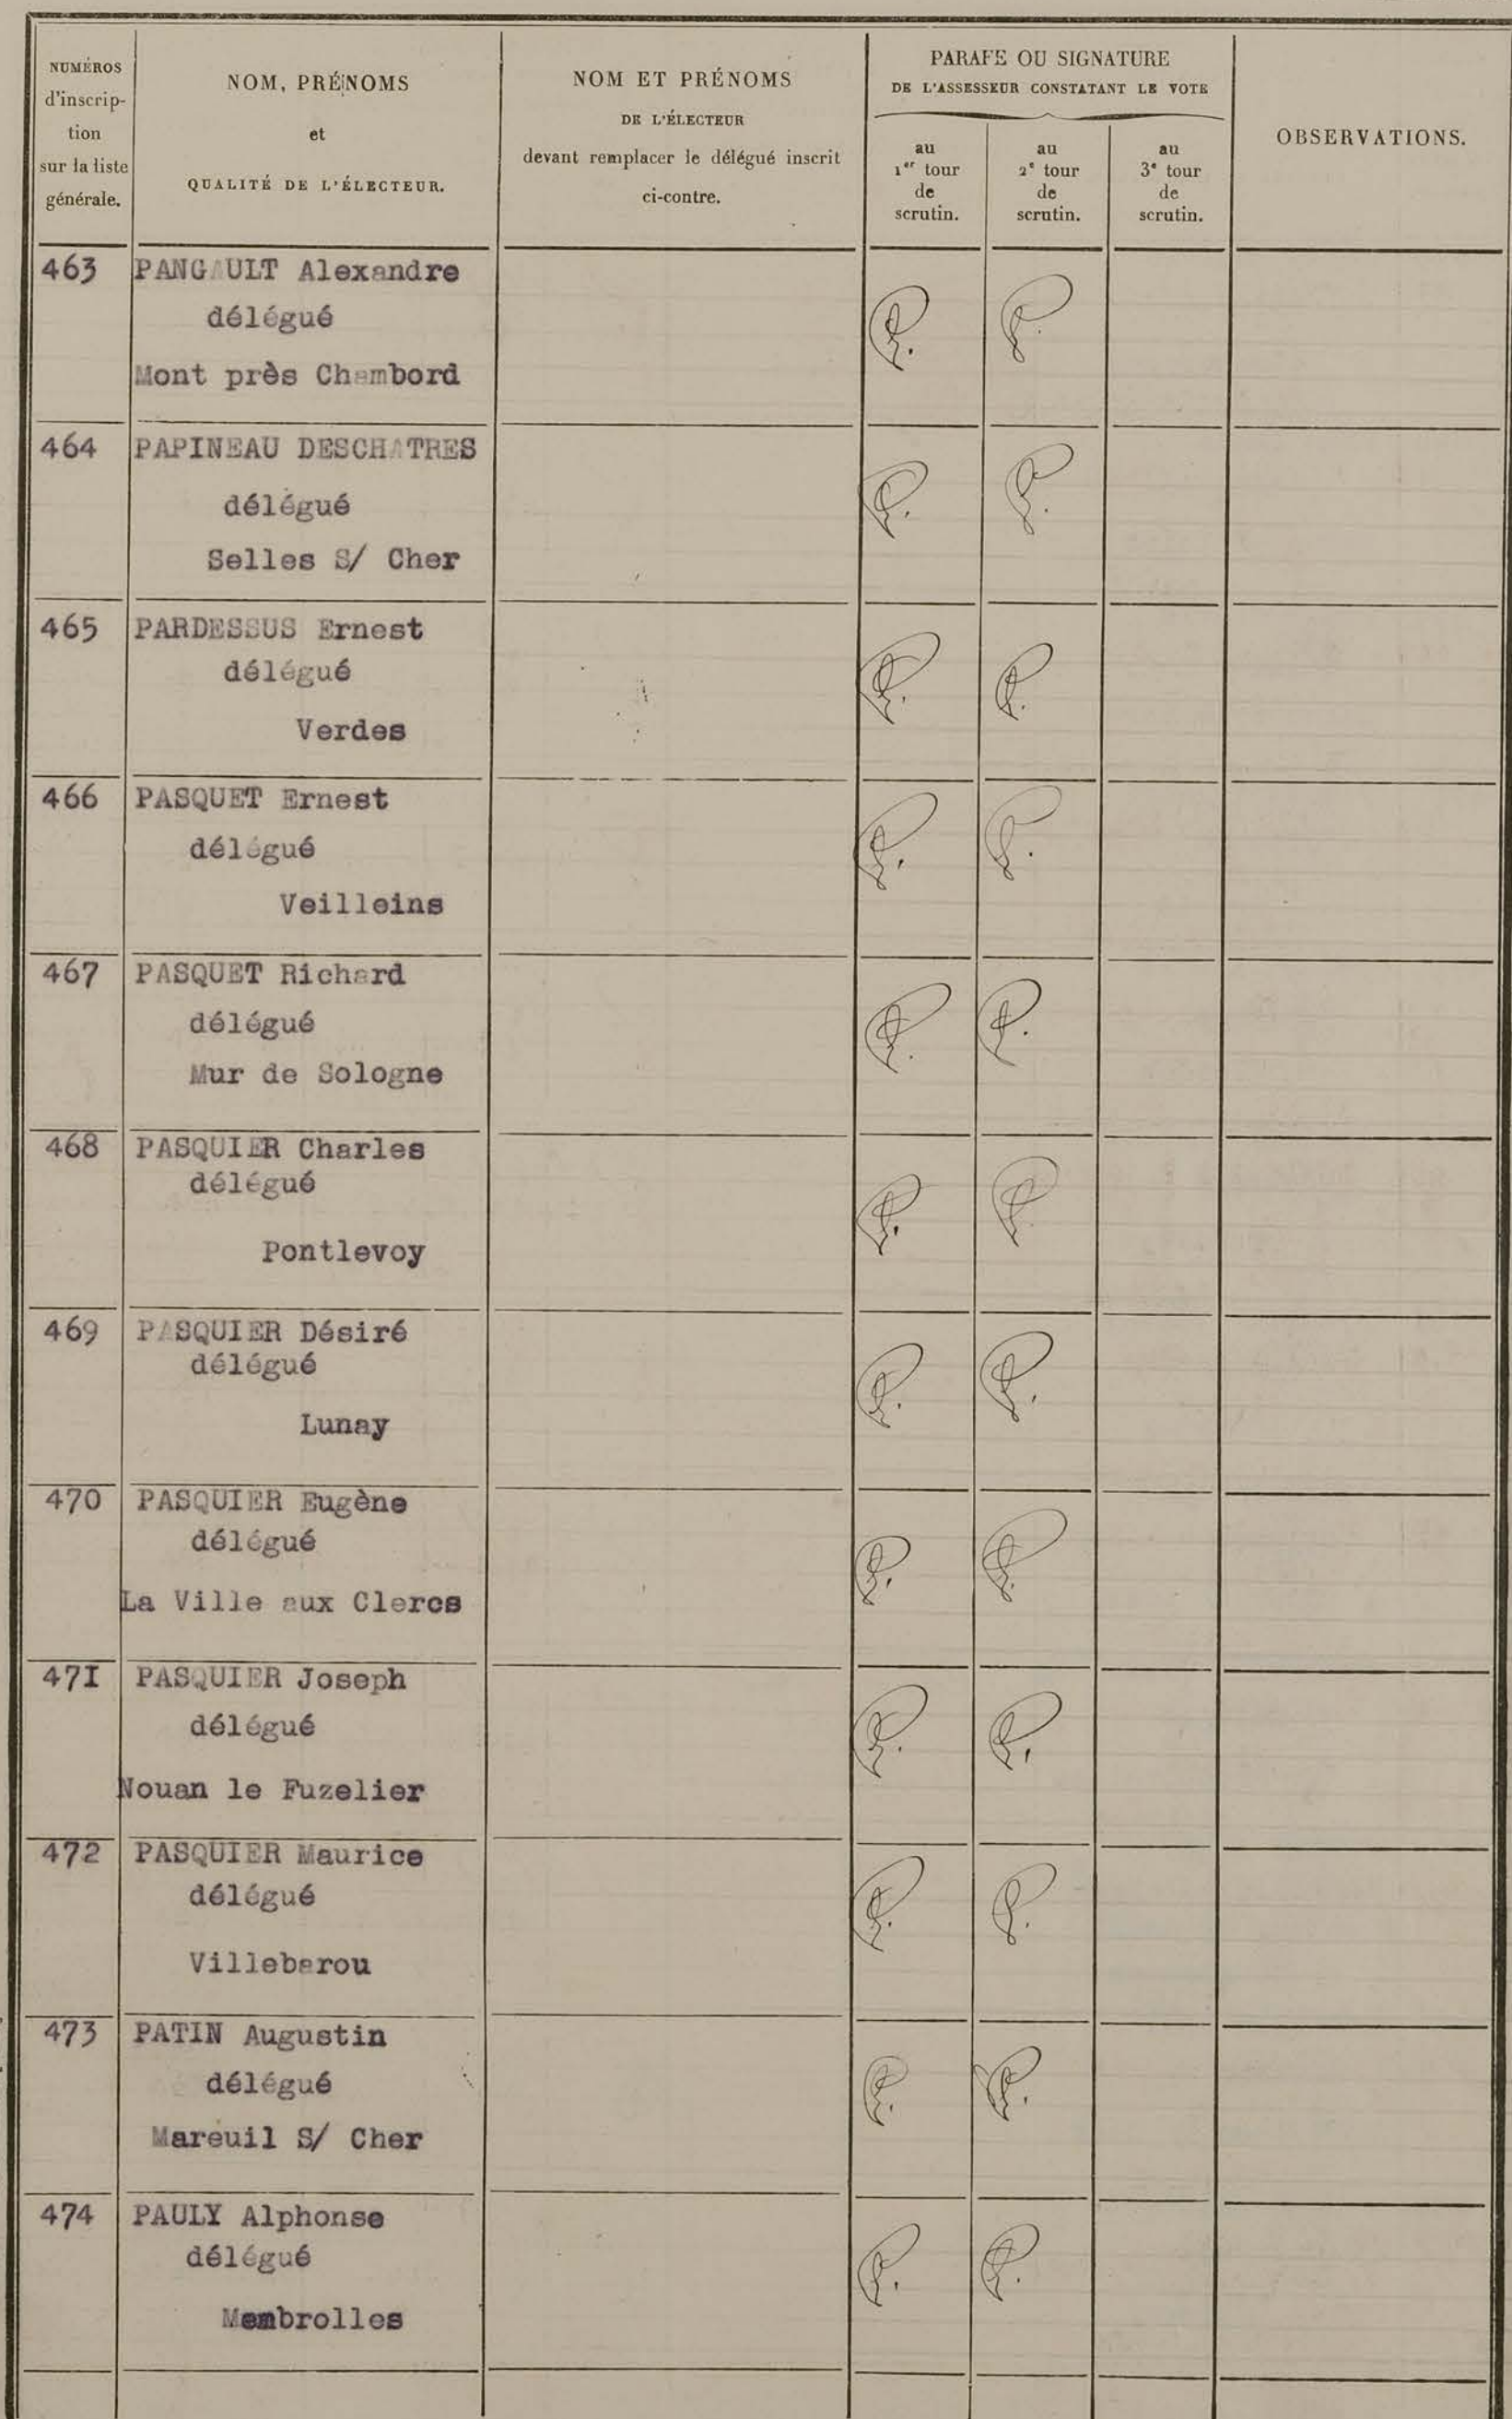 NUMÉROS
d'inscrip-
tion
sur la liste
générale.
NOM, PRÉNOMS
et
QUALITÉ DE L'ÉLECTEUR.
NOM ET PRÉNOMS
DE L'ÉLECTEUR
devant remplacer le délégué inscrit
ci-contre.
PARAFE OU SIGNATURE
DE L'ASSESSEUR CONSTATANT LE VOTE
au
1er tour
de
scrutin.
au
2e tour
de
scrutin.
au
3e tour
de
scrutin.
OBSERVATIONS.
463 PANGAULT Alexandre
délégué
Mont près Chambord
464 PAPINEAU DESCHATRES
délégué
Selles S/ Cher
465 PARDESSUS Ernest
délégué
Verdes
466 PASQUET Ernest
délégué
Veilleins
467 PASQUET Richard
délégué
Mur de Sologne
468 PASQUIER Charles
délégué
Pontlevoy
469 PASQUIER Désiré
délégué
Lunay
470 PASQUIER Eugène
délégué
La Ville aux Clercs
47I PASQUIER Joseph
délégué
Nouan le Fuzelier
472 PASQUIER Maurice
délégué
Villebarou
473 PATIN Augustin
délégué
Mareuil S/ Cher
474 PAULY Alphonse
délégué
Membrolles